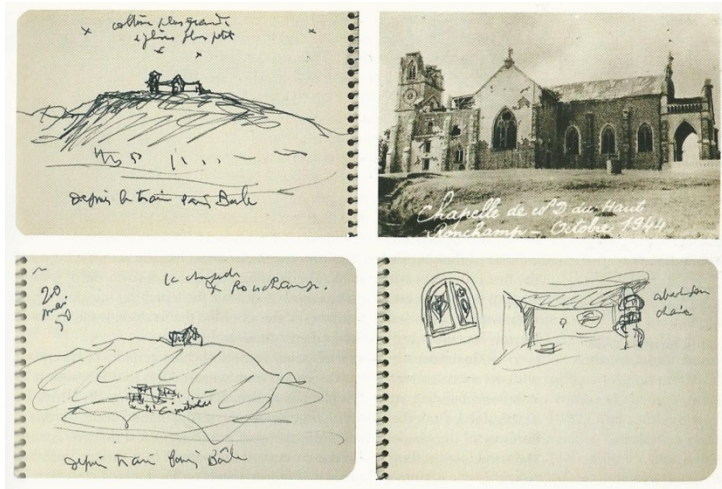 colline plus grande
église plus petit
depuis le train Paris Bâle
Chapelle de N D du Haut
Ronchamp - Octobre 1944
20
mai
50
la chapelle
Ronchamp.
cimetière
depuis train Paris Bâle
abat son
chaire